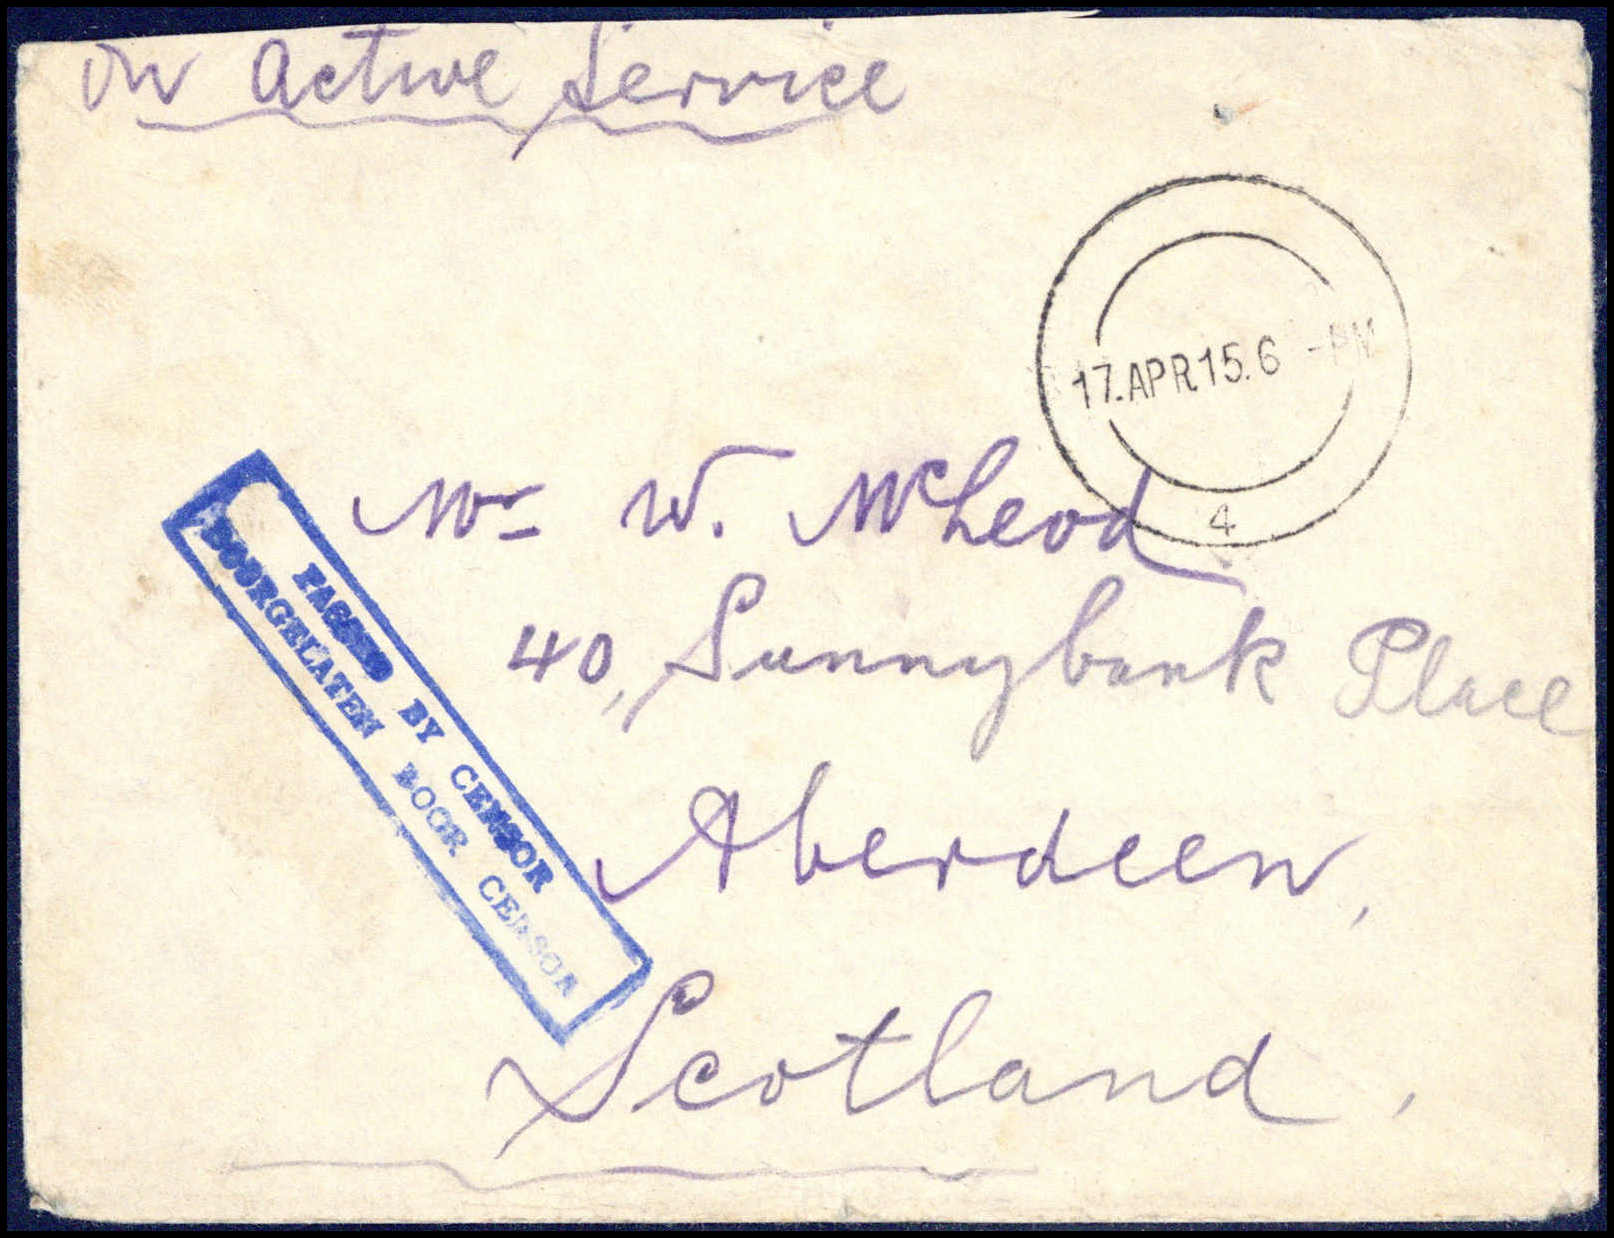 On Active Service
17.APR15.6 -PM
4
Mr W. McLeod
40, Sunnybank Place
Aberdeen,
Scotland,
PASSED BY CENSOR
DOORGELATEN DOOR CENSOR